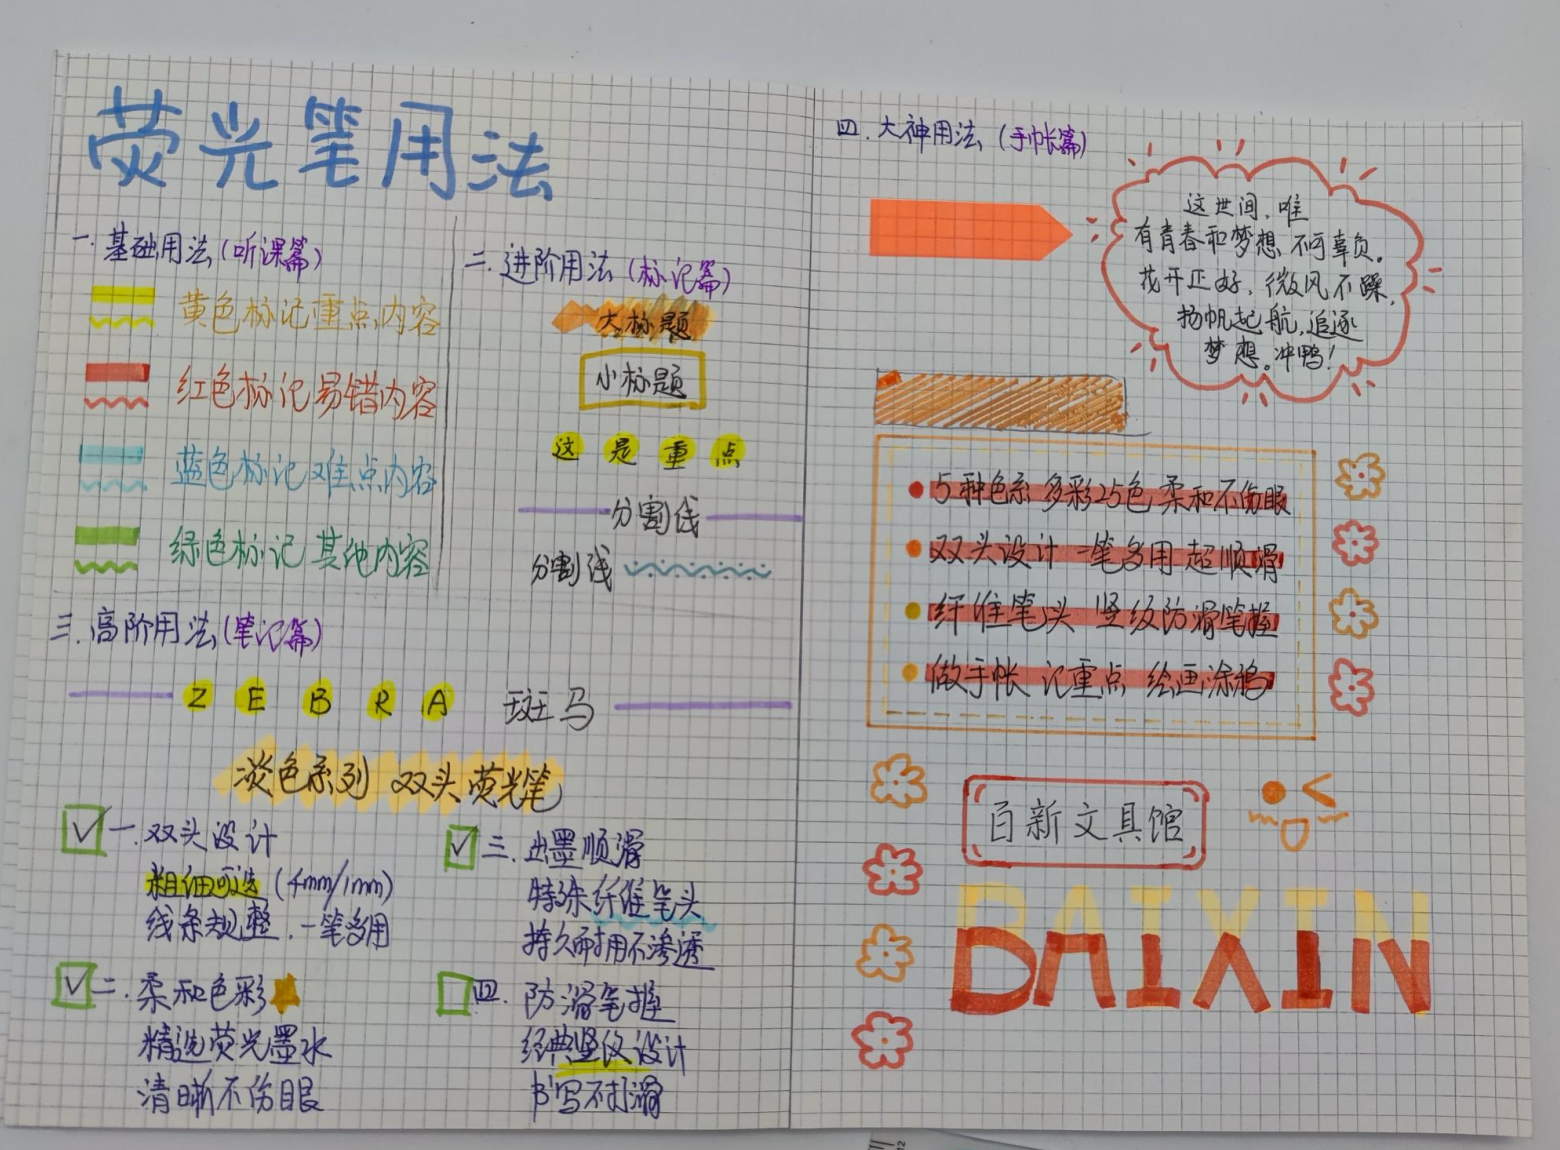 荧光笔用法
一.基础用法(听课篇)
黄色标记重点内容
红色标记易错内容
蓝色标记难点内容
绿色标记其他内容
二.进阶用法(标记篇)
大标题
小标题
这是重点
分割线
分割线
三.高阶用法(笔记篇)
ZEBRA 斑马
淡色系列 双头荧光笔
一.双头设计
粗细可选(4mm/1mm)
线条规整.一笔多用
二.柔和色彩
精选荧光墨水
清晰不伤眼
三.出墨顺滑
特殊纤维笔头
持久耐用不渗透
四.防滑笔握
经典竖纹设计
书写不打滑
四.大神用法(手帐篇)
这世间,唯
有青春和梦想不可辜负。
花开正好,微风不躁,
扬帆起航,追逐
梦想。冲鸭!
5种色系 多彩25色 柔和不伤眼
双头设计 一笔多用 超顺滑
纤维笔头 竖纹防滑笔握
做手帐 记重点 绘画涂鸦
百新文具馆
BAIXIN
12